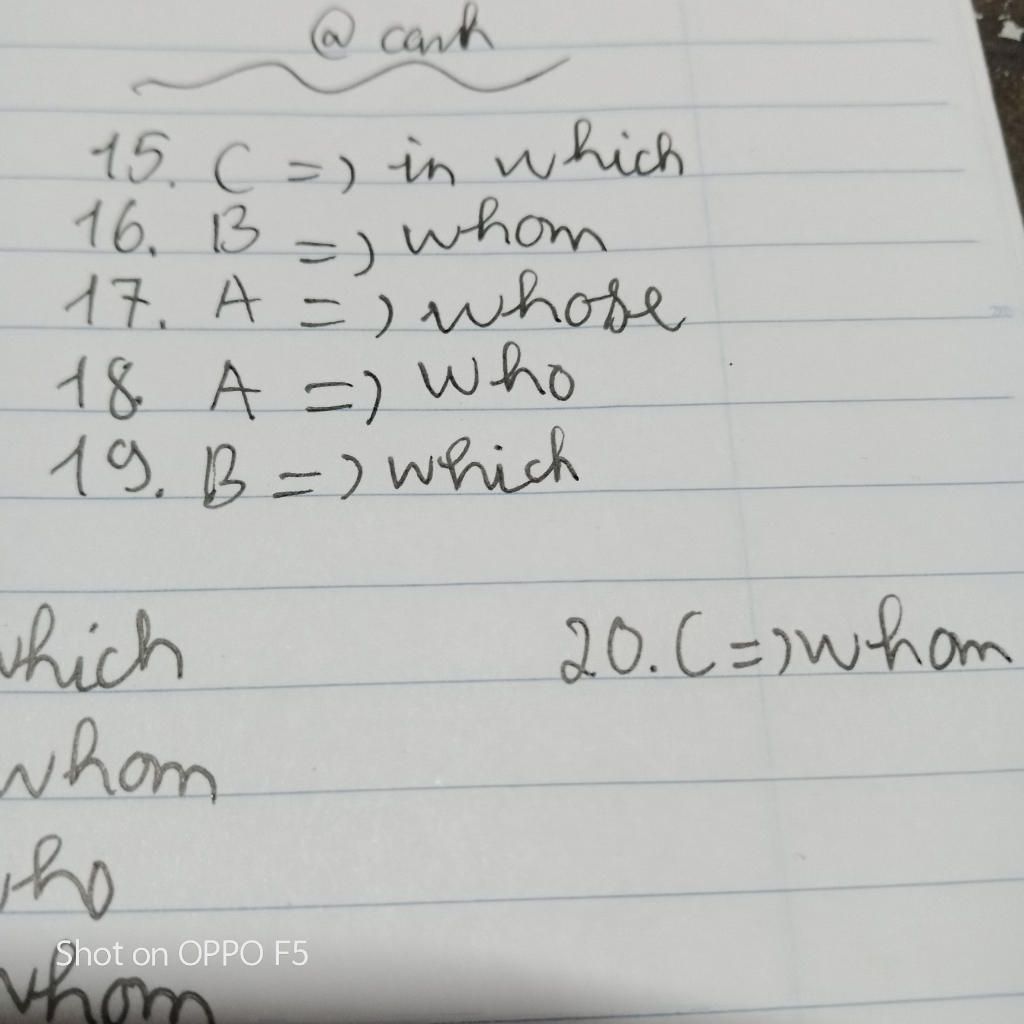 @ canh
15. C => in which
16. B => whom
17. A => whose
18. A => who
19. B => which
which
20. C => whom
whom
who
whom
Shot on OPPO F5